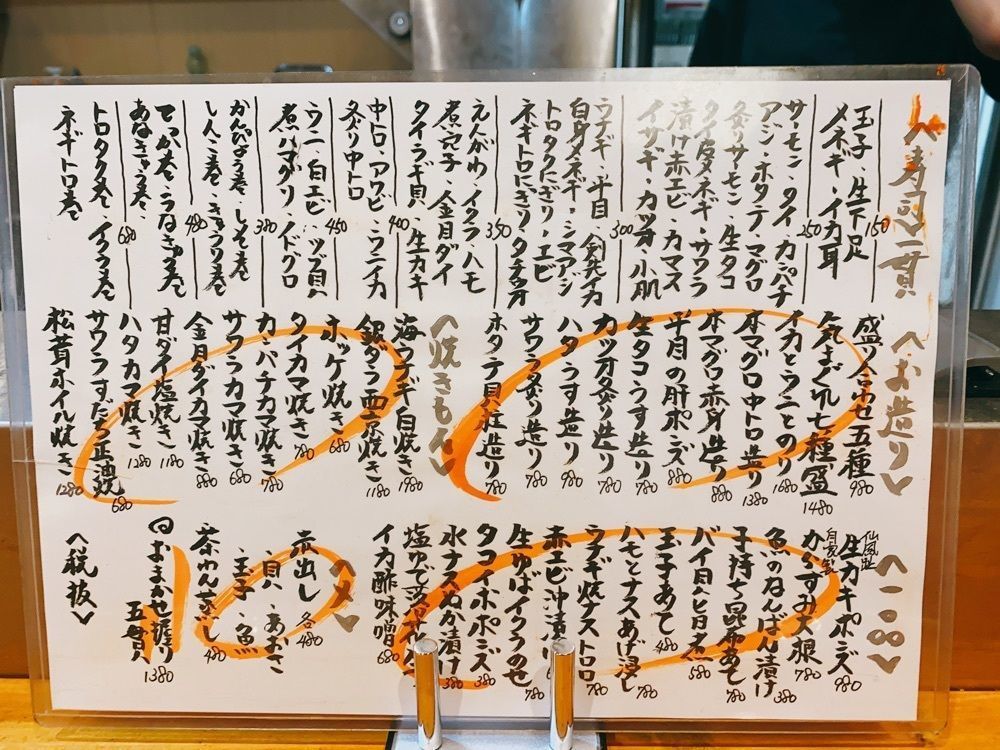 〈寿司一貫〉
玉子・生下足
メネギ・イカ耳
150
サーモン・タイ・カンパチ
アジ・ホタテ・マグロ
250
炙りサーモン・生タコ
タイ皮ネギ・サワラ
漬け赤エビ・カマス
イサギ・カツオ・小肌
300
ウナギ・平目・剣先イカ
白身メネギ・シマアジ
トロタクにぎり・エビ
ネギトロにぎり・タチウオ
350
えんがわ・イクラ・ハモ
煮穴子・金目ダイ
タイラギ貝・生カキ
400
中トロ・アワビ・ウニイカ
炙り中トロ
450
ウニ・白エビ・ツブ貝
煮ハマグリ・ノドグロ
380
かんぴょう巻・しそ巻
しんこ巻・きゅうり巻
480
てっか巻・うなきゅう巻
あなきゅう巻
680
トロタク巻・イクラ巻
ネギトロ巻
〈お造り〉
盛り合わせ五種 980
気まぐれ七種盛 1480
イカとウニとのり 1680
本マグロ中トロ造り 1380
本マグロ赤身造り 880
平目の肝ポン酢 880
生タコうす造り 780
カツオ炙り造り 780
ハタうす造り 980
サワラ炙り造り 780
ホタテ貝柱造り 780
〈焼きもん〉
海ウナギ白焼き 1980
銀ダラ西京焼き 1180
ホッケ焼き 680
タイカマ焼き 780
カンパチカマ焼き 780
サワラカマ焼き 680
金目ダイカマ焼き 880
甘ダイ塩焼き 1180
ハタカマ焼き 1280
サワラすだち正油焼 680
松茸ホイル焼き 1280
〈一品〉
仙鳳趾 生カキポン酢 980
自家製 からすみ大根 780
魚のなんばん漬け 380
子持ち昆布あて 780
バイ貝旨煮 580
玉子あて 480
ハモとナスあげ浸し 780
ウナギ焼ナストロロ 780
赤エビ沖漬け
生ゆばイクラのせ 780
タコイボポン酢 380
水ナスぬか漬け 380
塩ゆで落花生
イカ酢味噌 680
〈〆〉
赤出し 各480
・貝・あおさ
・玉子・魚
茶わんむし 480
おまかせ握り
五貫 1380
〈税抜〉